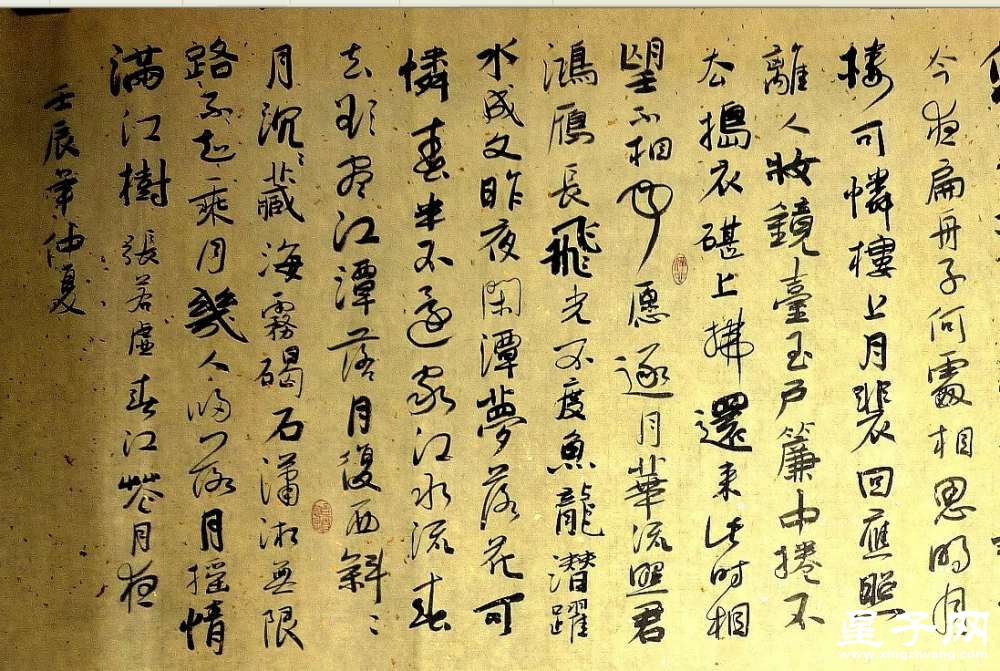 今夜扁舟子何處相思明月
楼可憐樓上月裴回應照
離人妝鏡臺玉戶簾中捲不
去搗衣碪上拂還來此时相
望不相聞愿逐月華流照君
鴻鴈長飛光不度魚龍潛躍
水成文昨夜閑潭夢落花可
憐春半不還家江水流春
去欲盡江潭落月復西斜々
月沉々藏海霧碣石瀟湘無限
路不知乘月幾人歸落月摇情
滿江樹 張若虛春江花月夜
壬辰年仲夏
星子网
www.xingziwang.com